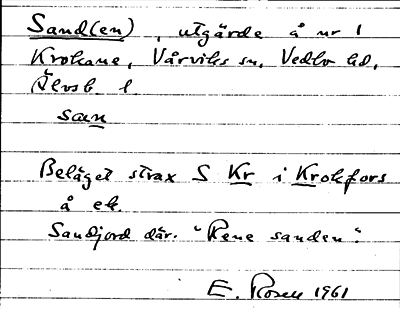 Sand(en), utgärde å nr 1
Krokane, Vårviks sn, Vedbo hd,
Älvsb l
san
Beläget strax S Kr i Krokfors
å ek.
Sandjord där. "Rene sanden".
E. Rosen 1961